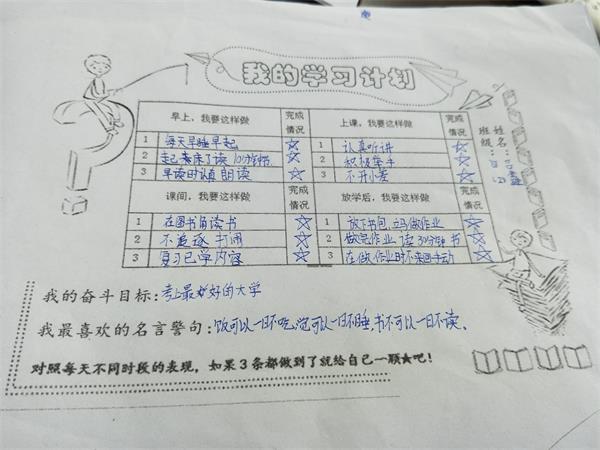 我的学习计划
早上，我要这样做 完成情况 上课，我要这样做 完成情况
1 每天早睡早起 ☆ 1 认真听讲 ☆
2 起来床了读10分钟书 ☆ 2 积极举手 ☆
3 早读时认真朗读 ☆ 3 不开小差 ☆
课间，我要这样做 完成情况 放学后，我要这样做 完成情况
1 在图书角读书 ☆ 1 放下书包，立马做作业 ☆
2 不追逐打闹 ☆ 2 做完作业，读30分钟书 ☆
3 复习已学内容 ☆ 3 在做作业时不来回走动 ☆
姓名：
班级：
我的奋斗目标：考上最好的大学
我最喜欢的名言警句：饭可以一日不吃，觉可以一日不睡，书不可以一日不读。
对照每天不同时段的表现，如果3条都做到了就给自己一颗★吧！